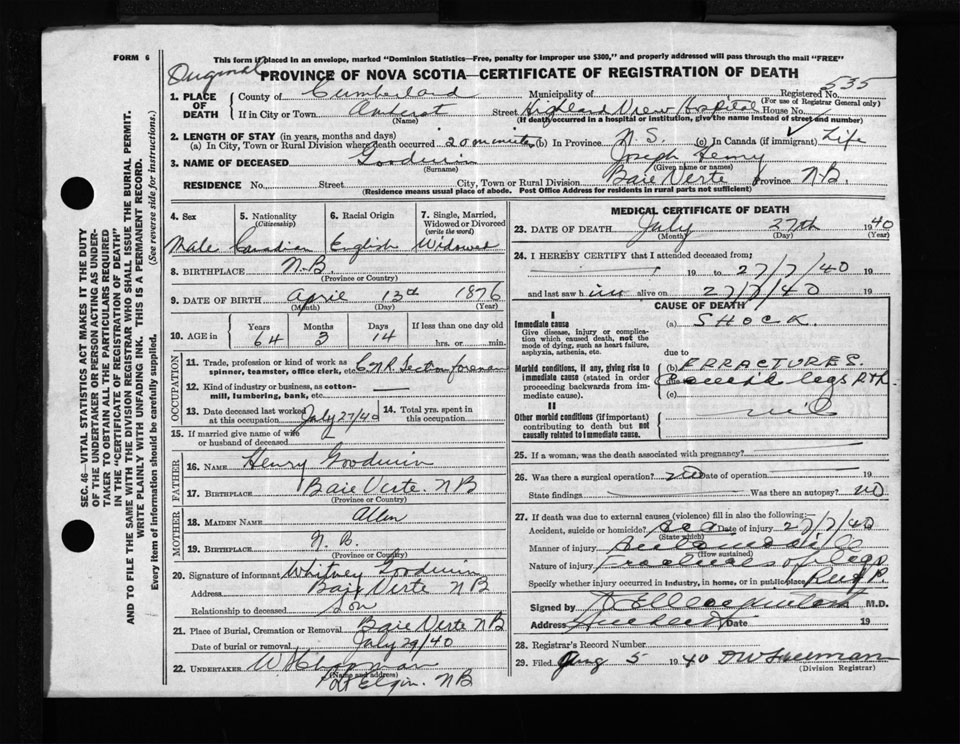 FORM 6
This form if placed in an envelope, marked "Dominion Statistics—Free, penalty for improper use $300," and properly addressed will pass through the mail "FREE"
Original
PROVINCE OF NOVA SCOTIA—CERTIFICATE OF REGISTRATION OF DEATH
535
1. PLACE OF DEATH
County of Cumberland Municipality of Registered No.
(For use of Registrar General only)
If in City or Town Amherst Street Highland View Hospital House No.
(Name) (If death occurred in a hospital or institution, give the name instead of street and number)
2. LENGTH OF STAY (in years, months and days)
(a) In City, Town or Rural Division where death occurred 20 minutes (b) In Province N.S. (c) In Canada (if immigrant) Life
3. NAME OF DECEASED Goodwin Joseph Henry
(Surname) (Given name or names)
RESIDENCE No. Street City, Town or Rural Division Baie Verte Province N.B.
(Residence means usual place of abode. Post Office Address for residents in rural parts not sufficient)
4. Sex Male
5. Nationality (Citizenship) Canadian
6. Racial Origin English
7. Single, Married, Widowed or Divorced (write the word) Widowed
8. BIRTHPLACE N.B.
(Province or Country)
9. DATE OF BIRTH April 13th 1876
(Month) (Day) (Year)
10. AGE in Years 64 Months 3 Days 14 If less than one day old
hrs. or min.
OCCUPATION
11. Trade, profession or kind of work as spinner, teamster, office clerk, etc. C.N.R. Section foreman
12. Kind of industry or business, as cotton-mill, lumbering, bank, etc.
13. Date deceased last worked at this occupation July 27/40
14. Total yrs. spent in this occupation
15. If married give name of wife or husband of deceased
FATHER
16. NAME Henry Goodwin
17. BIRTHPLACE Baie Verte N B
(Province or Country)
MOTHER
18. MAIDEN NAME Allen
19. BIRTHPLACE N. B.
(Province or Country)
20. Signature of informant Whitney Goodwin
Address Baie Verte N B
Relationship to deceased Son
21. Place of Burial, Cremation or Removal Baie Verte N B
Date of burial or removal July 29/40
22. UNDERTAKER W H Chapman
(Name and address)
Pt Elgin. N B
MEDICAL CERTIFICATE OF DEATH
23. DATE OF DEATH July 27th 1940
(Month) (Day) (Year)
24. I HEREBY CERTIFY that I attended deceased from:
19 to 27/7/40 19
and last saw h im alive on 27/7/40 19
CAUSE OF DEATH
I
Immediate cause
Give disease, injury or complication which caused death, not the mode of dying, such as heart failure, asphyxia, asthenia, etc.
(a) SHOCK.
due to
Morbid conditions, if any, giving rise to immediate cause (stated in order proceeding backwards from immediate cause).
(b) FRACTURES.
(c) legs
II
Other morbid conditions (if important) contributing to death but not causally related to immediate cause.
nil
25. If a woman, was the death associated with pregnancy?
26. Was there a surgical operation? no Date of operation 19
State findings Was there an autopsy? no
27. If death was due to external causes (violence) fill in also the following:
Accident, suicide or homicide? Acc Date of injury 27/7/40
(State which)
Manner of injury
(How sustained)
Nature of injury Fractures of legs
Specify whether injury occurred in industry, in home, or in public place
Signed by M.D.
Address Amherst Date 19
28. Registrar's Record Number
29. Filed Aug 5 1940 D W Freeman
(Division Registrar)
SEC. 46—VITAL STATISTICS ACT MAKES IT THE DUTY
OF THE UNDERTAKER OR PERSON ACTING AS UNDER-
TAKER TO OBTAIN ALL THE PARTICULARS REQUIRED
IN THE "CERTIFICATE OF REGISTRATION OF DEATH"
AND TO FILE THE SAME WITH THE DIVISION REGISTRAR WHO SHALL ISSUE THE BURIAL PERMIT.
WRITE PLAINLY WITH UNFADING INK. THIS IS A PERMANENT RECORD.
Every item of information should be carefully supplied. (See reverse side for instructions.)